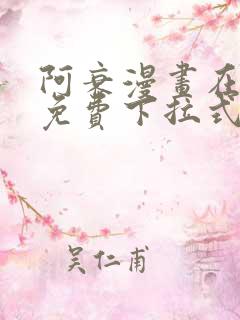 阿衰漫畫在
免費下拉式
吴仁甫